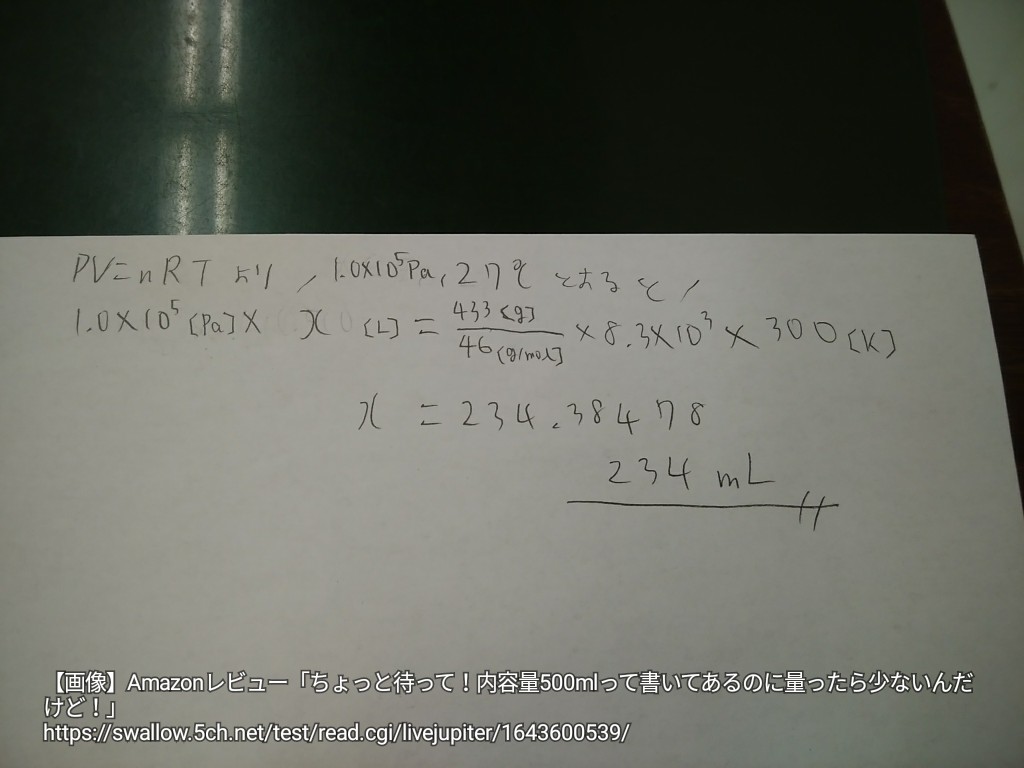 PV=nRTより, 1.0×10⁵Pa, 27℃とおると,
1.0×10⁵[Pa]× x [L] = 433[g]/46[g/mol] ×8.3×10³×300[K]
x = 234.38478
234 mL
【画像】Amazonレビュー「ちょっと待って!内容量500mlって書いてあるのに量ったら少ないんだ
けど!」
https://swallow.5ch.net/test/read.cgi/livejupiter/1643600539/